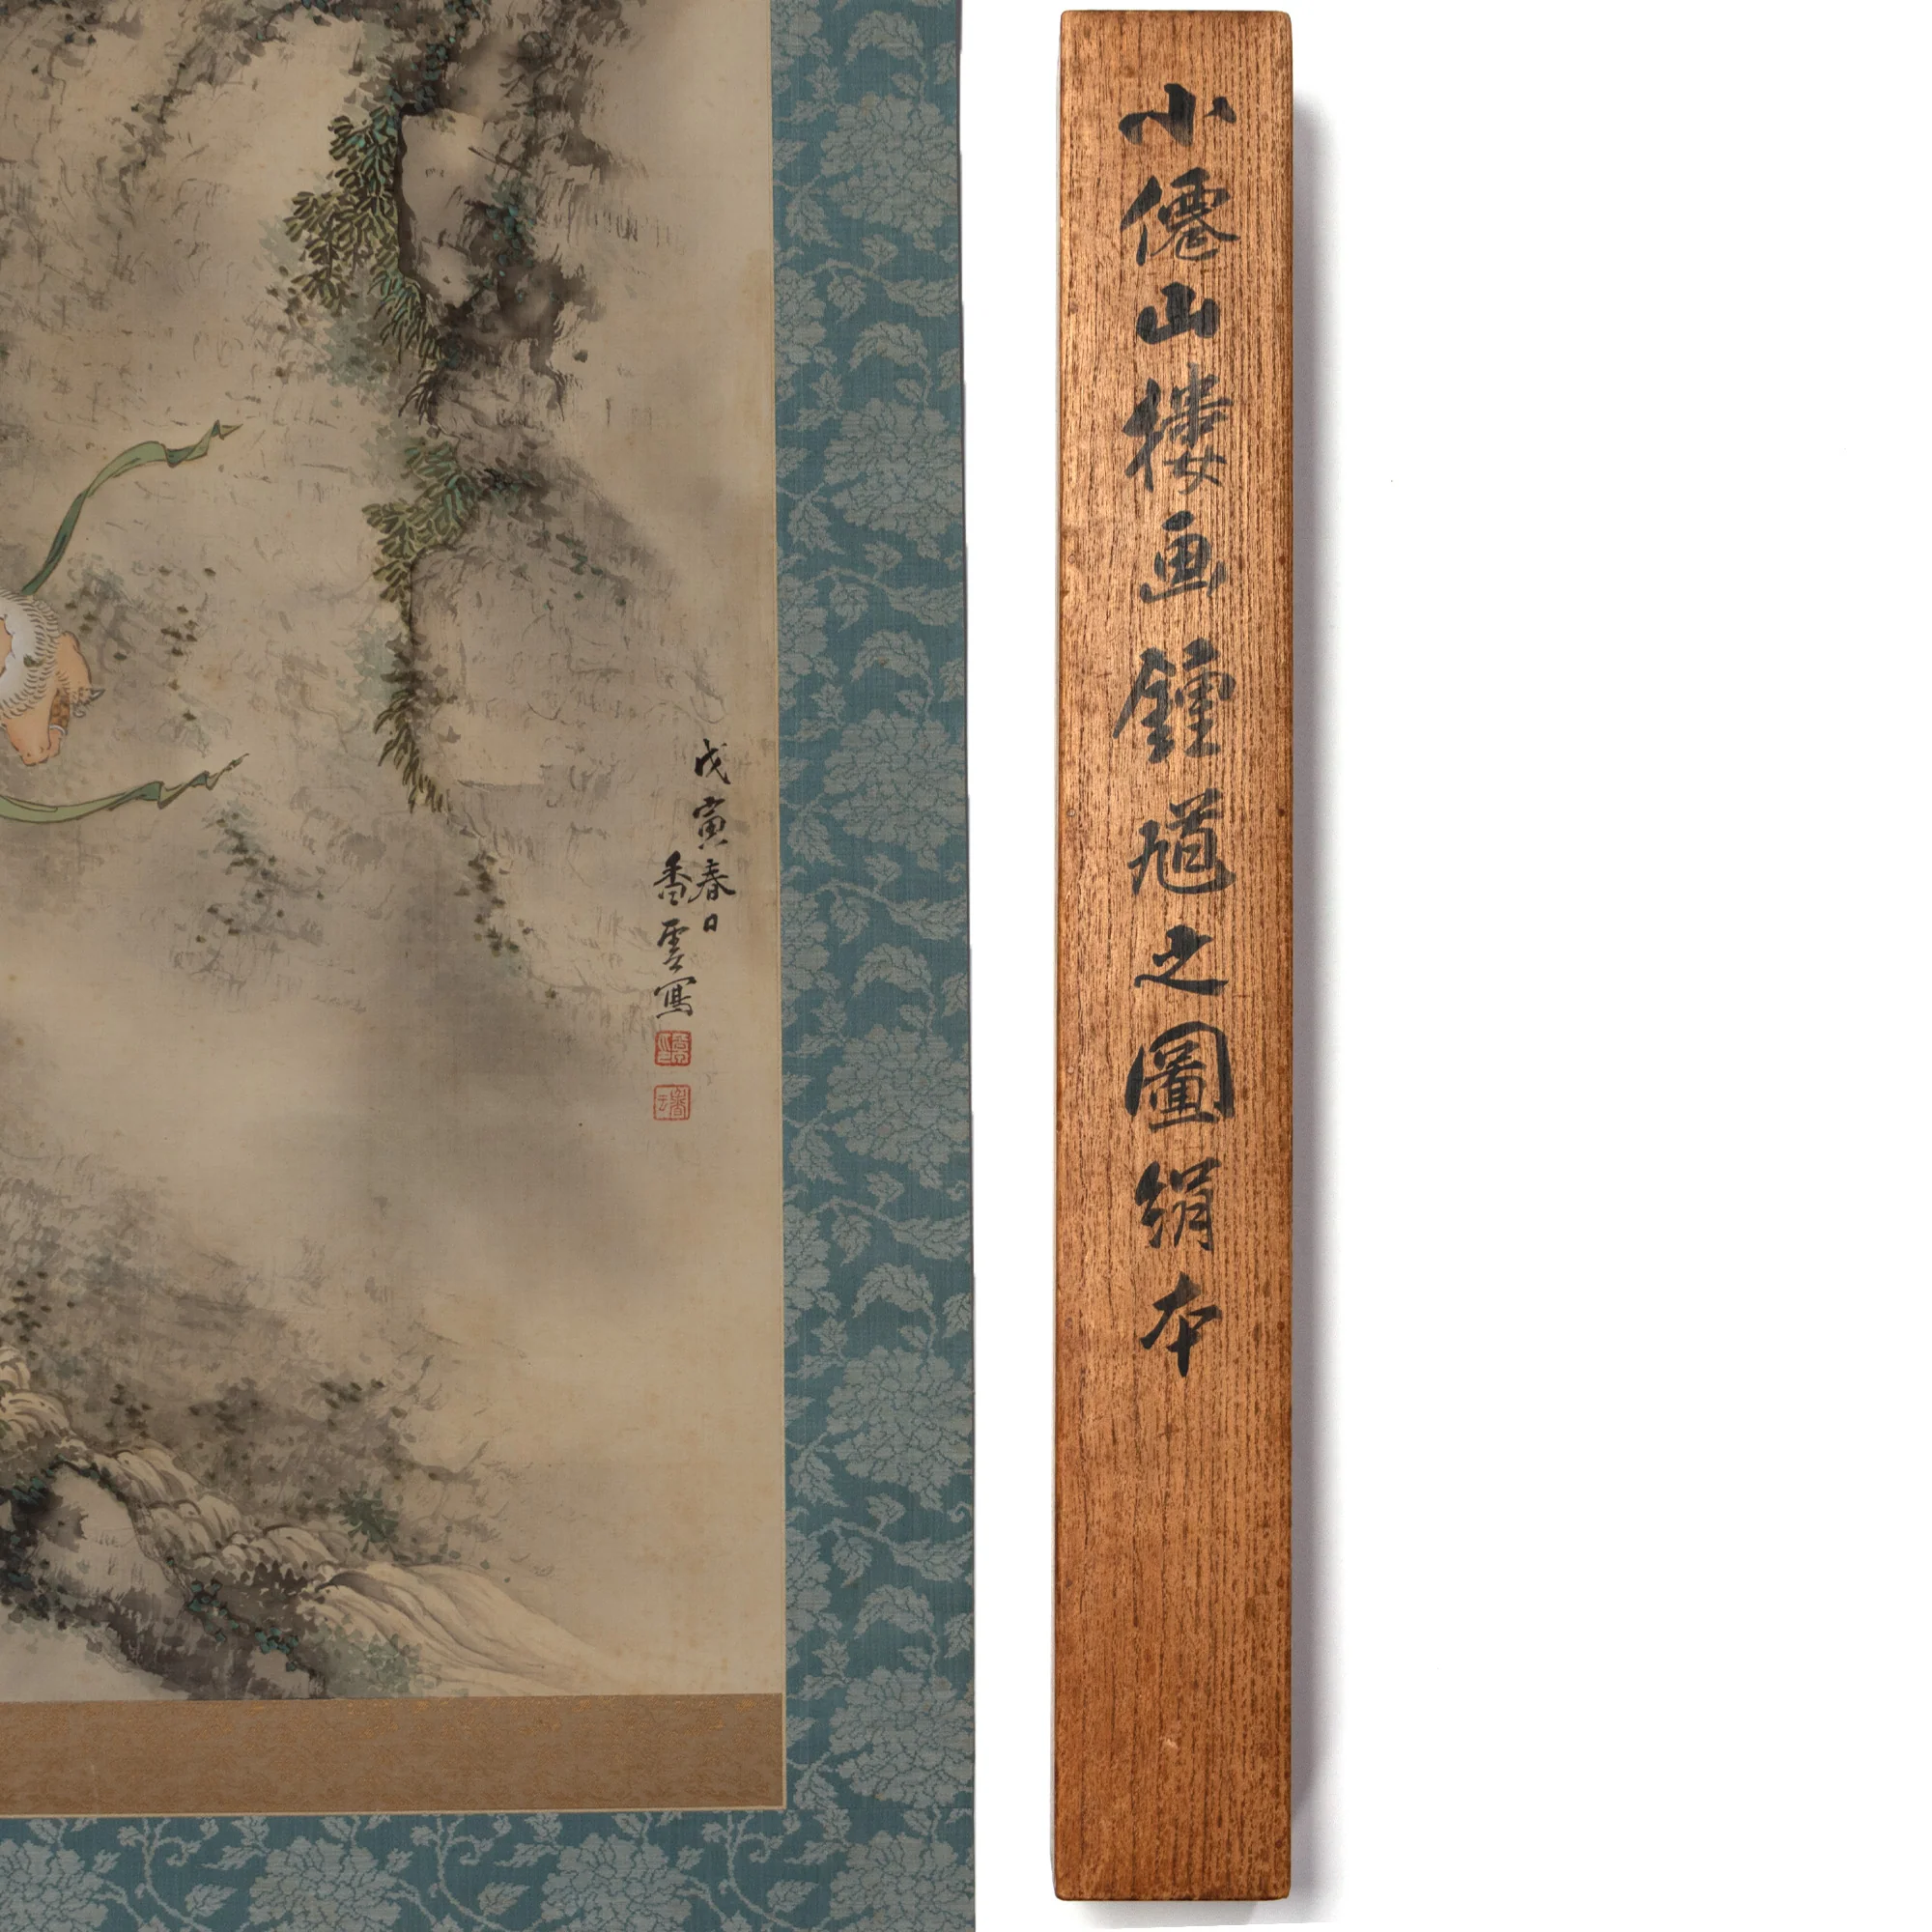 小僊山楼画鍾馗之圖絹本
戊寅春日
香雲寫